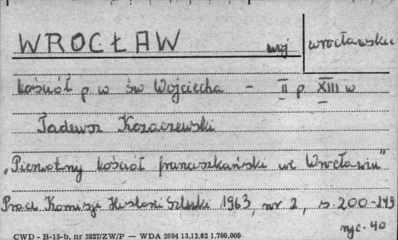 WROCŁAW woj wrocławskie
kościół p w św Wojciecha - II p XIII w
Tadeusz Kozaczewski
„Pierwotny kościół franciszkański we Wrocławiu"
Prace Komisji Historii Sztuki 1963, nr 2, s. 200-249
ryc. 40
CWD - B-15-b, nr 2827/ZW/P — WDA 2694 13.12.62 1.700.000